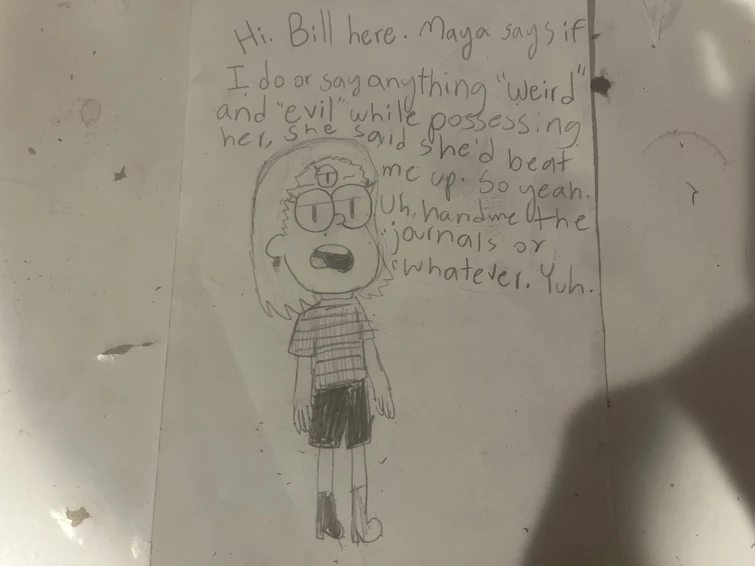 Hi. Bill here. Maya says if
I do or say anything "weird"
and "evil" while possessing
her, she said she'd beat
me up. So yeah.
Uh, hand me the
journals or
whatever. Yuh.